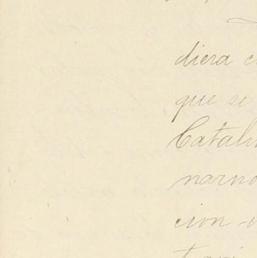 diera c
que se
Catali
narno
cion